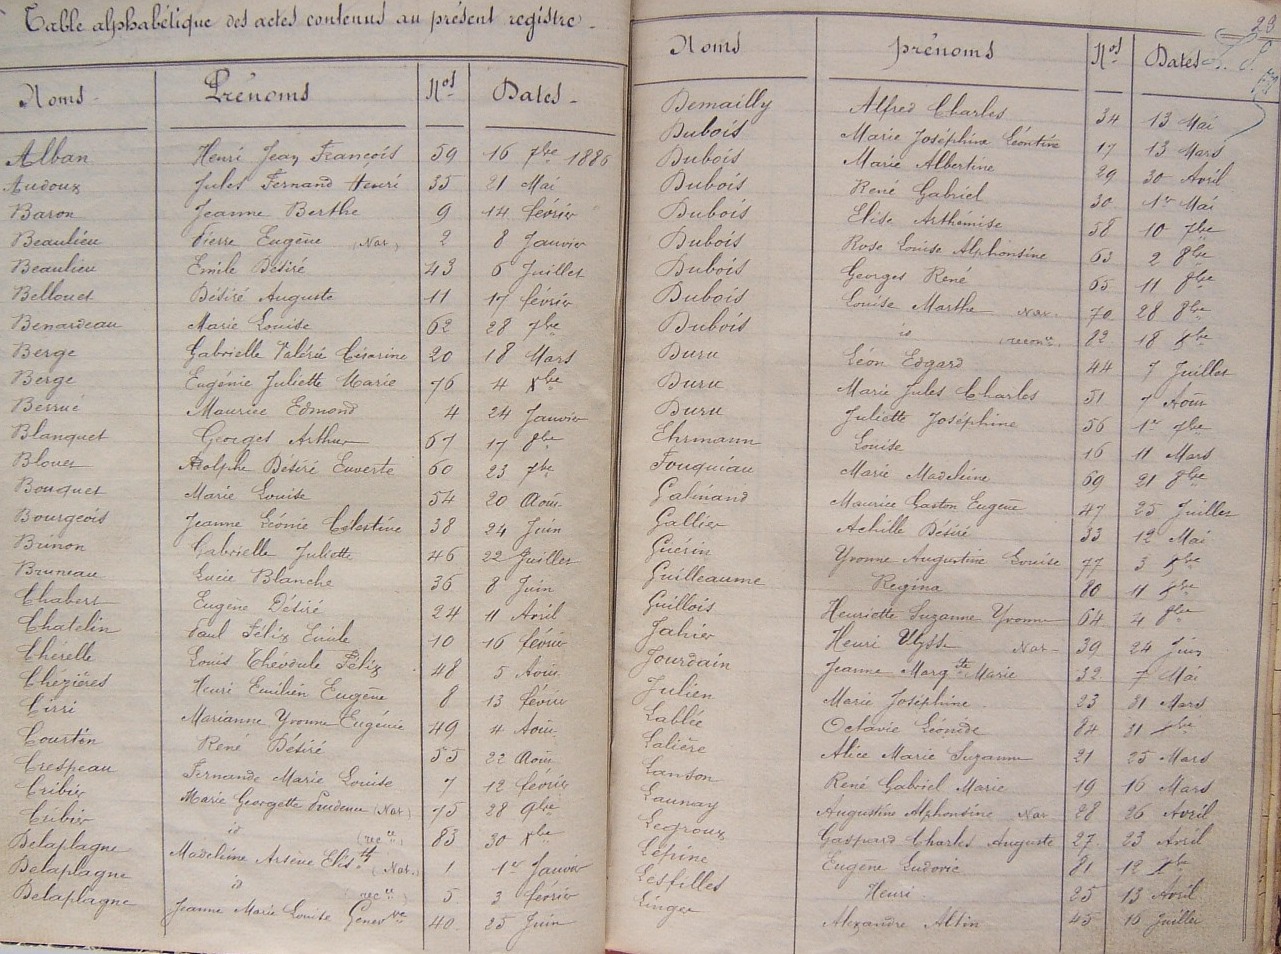 Table alphabétique des actes contenus au présent registre
Noms Prénoms Nos Dates
Alban Henri Jean François 59 16 7bre 1886
Audoux Jules Fernand Henri 35 21 Mai
Baron Jeanne Berthe 9 14 février
Beaulieu Pierre Eugène (Nar.) 2 8 Janvier
Beaulieu Emile Désiré 43 6 Juillet
Bellouet Désiré Auguste 11 17 février
Benardeau Marie Louise 62 28 7bre
Berge Gabrielle Valérie Césarine 20 18 Mars
Berge Eugénie Juliette Marie 76 4 Xbre
Berrué Maurice Edmond 4 24 Janvier
Blanquet Georges Arthur 67 17 8bre
Blouet Adolphe Désiré Euverte 60 23 7bre
Bouquet Marie Louise 54 20 Août
Bourgeois Jeanne Léonie Célestine 38 24 Juin
Brinon Gabrielle Juliette 46 22 Juillet
Bruneau Lucie Blanche 36 8 Juin
Chabert Eugène Désiré 24 11 Avril
Chatelin Paul Félix Emile 10 16 février
Cherelle Louis Théodule Félix 48 5 Août
Chézières Henri Emilien Eugène 8 13 février
Cirri Marianne Yvonne Eugénie 49 4 Août
Courtin René Désiré 55 22 Août
Crespeau Fernande Marie Louise 7 12 février
Cribier Marie Georgette (Nar) 75 28 9bre
Cribier id (rec.) 83 30 Xbre
Delaplagne Madeleine Arsène Elisth (Nar.) 1 1er Janvier
Delaplagne id (rec.) 5 3 février
Delaplagne Jeanne Marie Louise Genevve 40 25 Juin
23
Noms prénoms Nos Dates
Demailly Alfred Charles 34 13 Mai
Dubois Marie Joséphine Léontine 17 13 Mars
Dubois Marie Albertine 29 30 Avril
Dubois René Gabriel 30 1er Mai
Dubois Elise Arthémise 58 10 7bre
Dubois Rose Louise Alphonsine 63 2 8bre
Dubois Georges René 65 11 8bre
Dubois Louise Marthe Nar. 70 28 8bre
Dubois id 82 18 Xbre
Duru Léon Edgard 44 7 Juillet
Duru Marie Jules Charles 51 7 Août
Duru Juliette Joséphine 56 1er 7bre
Ehrmann Louise 16 11 Mars
Fouquiau Marie Madeleine 69 21 8bre
Galinand Maurice Gaston Eugène 47 25 Juillet
Gallier Achille Désiré 33 12 Mai
Guérin Yvonne Augustine Louise 77 3 Xbre
Guilleaume Régina 80 11 Xbre
Guillois Henriette Suzanne Yvonne 64 4 8bre
Jahier Henri Ulysse Nar 39 24 Juin
Jourdain Jeanne Margte Marie 32 7 Mai
Julien Marie Joséphine 23 31 Mars
Lablée Octavie Léonide 84 31 Xbre
Lalière Alice Marie Suzanne 21 25 Mars
Lanson René Gabriel Marie 19 16 Mars
Launay Augustine Alphonsine Nar 28 26 Avril
Legroux Gaspard Charles Auguste 27 23 Avril
Lépine Eugène Ludovic 81 12 Xbre
Lesfilles Henri 25 13 Avril
Linger Alexandre Albin 45 16 Juillet